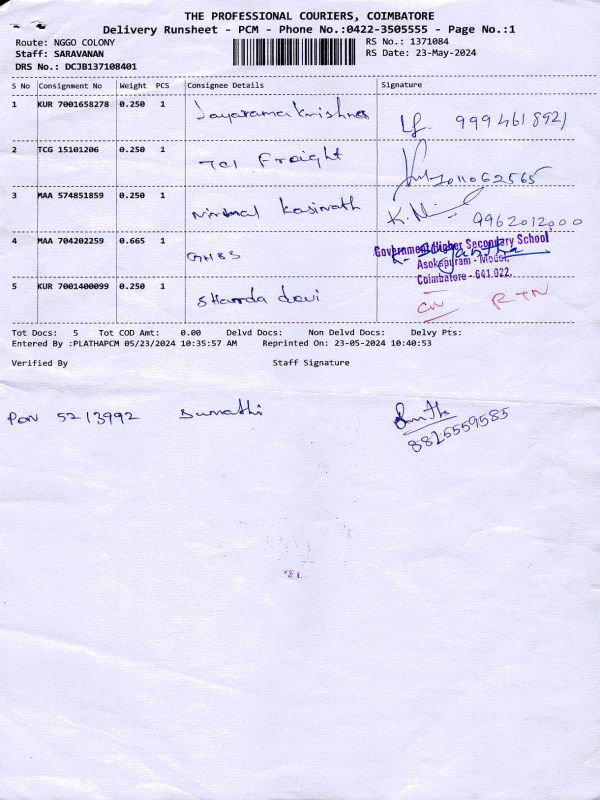 THE PROFESSIONAL COURIERS, COIMBATORE
Delivery Runsheet - PCM - Phone No.:0422-3505555 - Page No.:1
Route: NGGO COLONY RS No.: 1371084
Staff: SARAVANAN RS Date: 23-May-2024
DRS No.: DCJB137108401
S No Consignment No Weight PCS Consignee Details Signature
1 KUR 7001658278 0.250 1 Jayaramakrishna 9994618921
2 TCG 15101206 0.250 1 TCI Freight
3 MAA 574851859 0.250 1 Nirmal Kasinath K.N 9962012000
4 MAA 704202259 0.665 1 GHSS
Government Higher Secondary School
Asokapuram - Model,
Coimbatore - 641 022.
5 KUR 7001400099 0.250 1 Sharda devi RTN
Tot Docs: 5 Tot COD Amt: 0.00 Delvd Docs: Non Delvd Docs: Delvy Pts:
Entered By :PLATHAPCM 05/23/2024 10:35:57 AM Reprinted On: 23-05-2024 10:40:53
Verified By Staff Signature
PON 5213992 Sumathi
8825559585